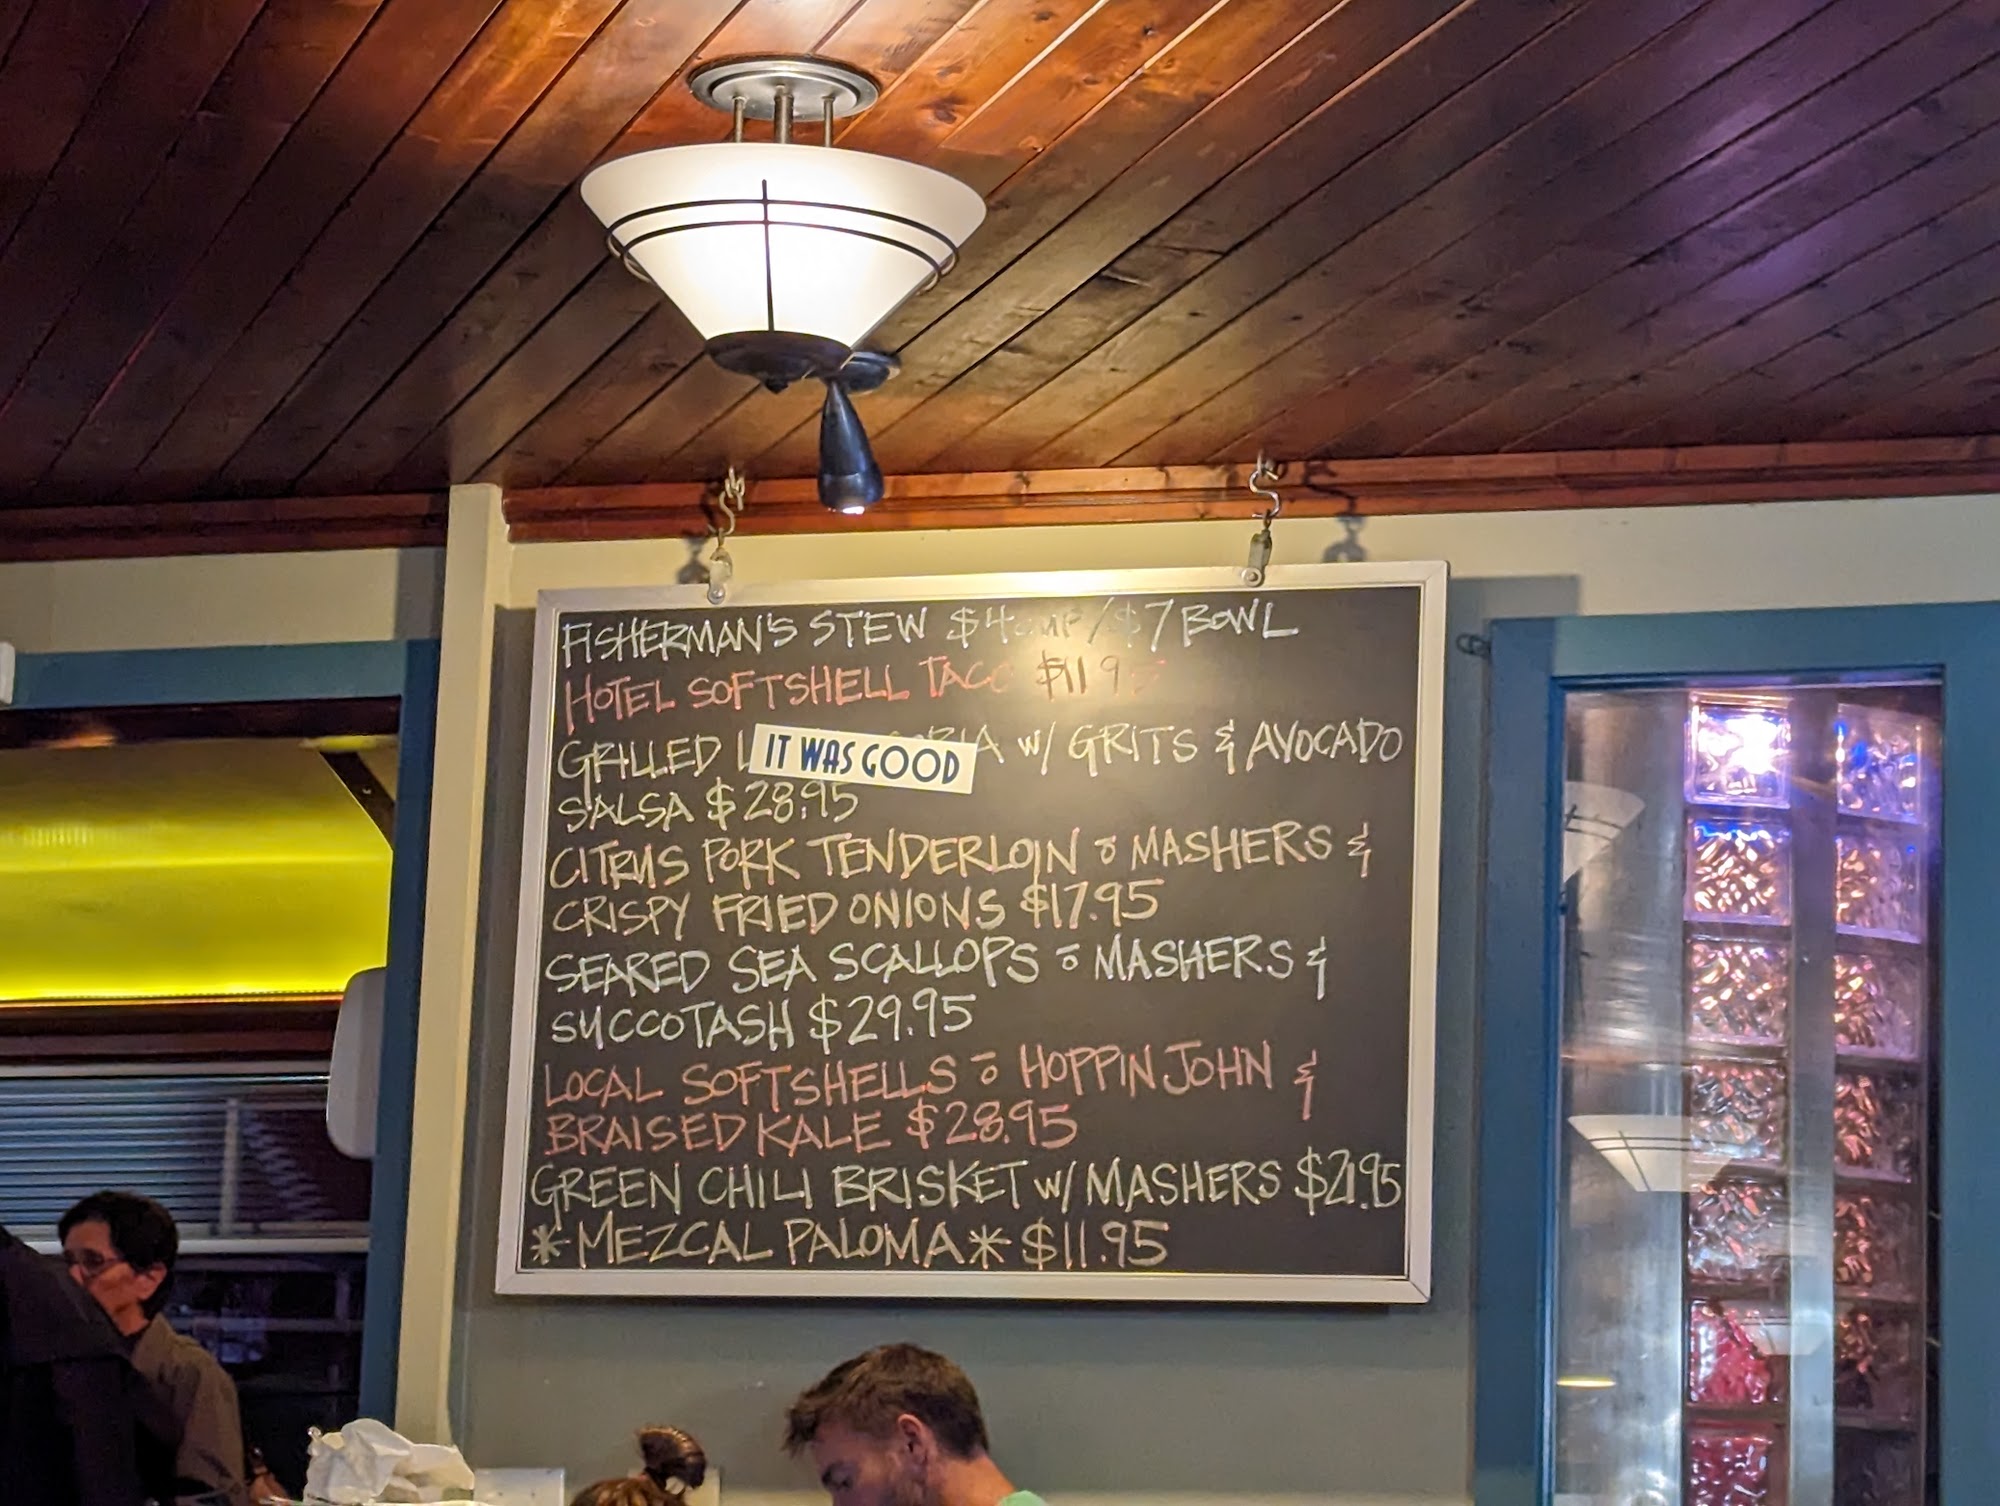 FISHERMAN'S STEW $4 CUP/$7 BOWL
HOTEL SOFTSHELL TACO $11.95
GRILLED W/ GRITS & AVOCADO
IT WAS GOOD
SALSA $28.95
CITRUS PORK TENDERLOIN c̄ MASHERS &
CRISPY FRIED ONIONS $17.95
SEARED SEA SCALLOPS c̄ MASHERS &
SUCCOTASH $29.95
LOCAL SOFTSHELLS c̄ HOPPIN JOHN &
BRAISED KALE $28.95
GREEN CHILI BRISKET W/ MASHERS $21.95
*MEZCAL PALOMA* $11.95